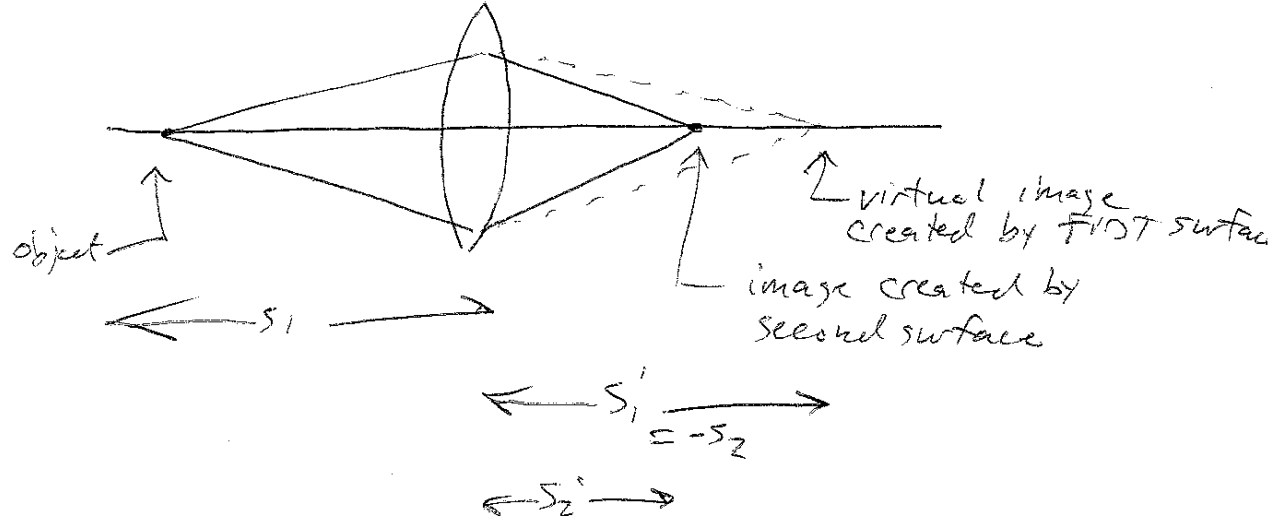 object
virtual image
created by first surface
image created by
second surface
s₁
s₁'
= -s₂
s₂'